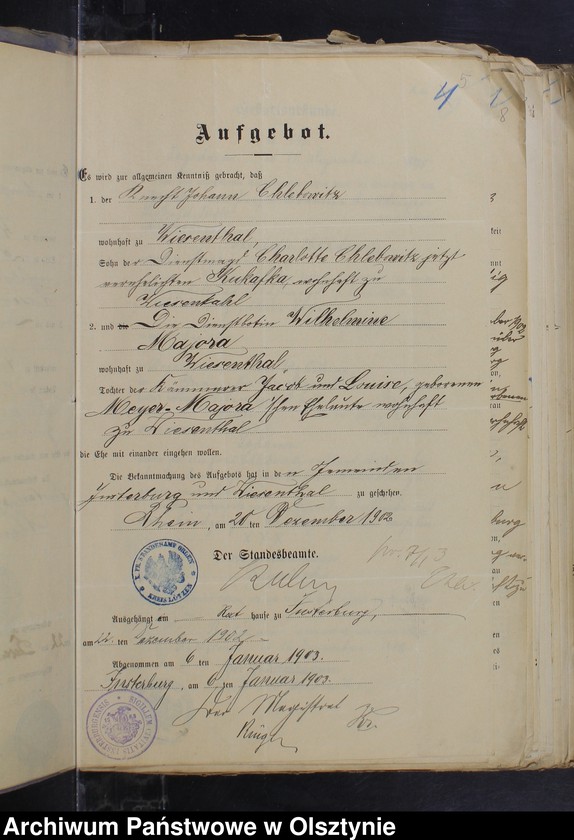 4 5 1/8
Aufgebot.
Es wird zur allgemeinen Kenntniß gebracht, daß
1. der Knecht Johann Chlebowitz
wohnhaft zu Wiesenthal,
Sohn der Dienstmagd Charlotte Chlebowitz jetzt
verehelichten Kukafka, wohnhaft zu
Wiesenthal
2. und die Die Dienstbotin Wilhelmine
Majora
wohnhaft zu Wiesenthal
Tochter der Kämmerer Jacob und Louise, geborenen
Meyer-Majora'schen Eheleute wohnhaft
zu Wiesenthal
die Ehe mit einander eingehen wollen.
Die Bekanntmachung des Aufgebots hat in den Gemeinden
Insterburg und Wiesenthal zu geschehen.
Rhein, am 20 ten Dezember 1902
Der Standesbeamte.
K. PR. STANDESAMT
KREIS LÖTZEN
Ausgehängt am Rathause zu Insterburg,
am 22. ten Dezember 1902
Abgenommen am 6 ten Januar 1903.
Insterburg, am 6 ten Januar 1903.
Der Magistrat
SIGILLUM CIVITATIS INSTERBURGENSIS
Archiwum Państwowe w Olsztynie